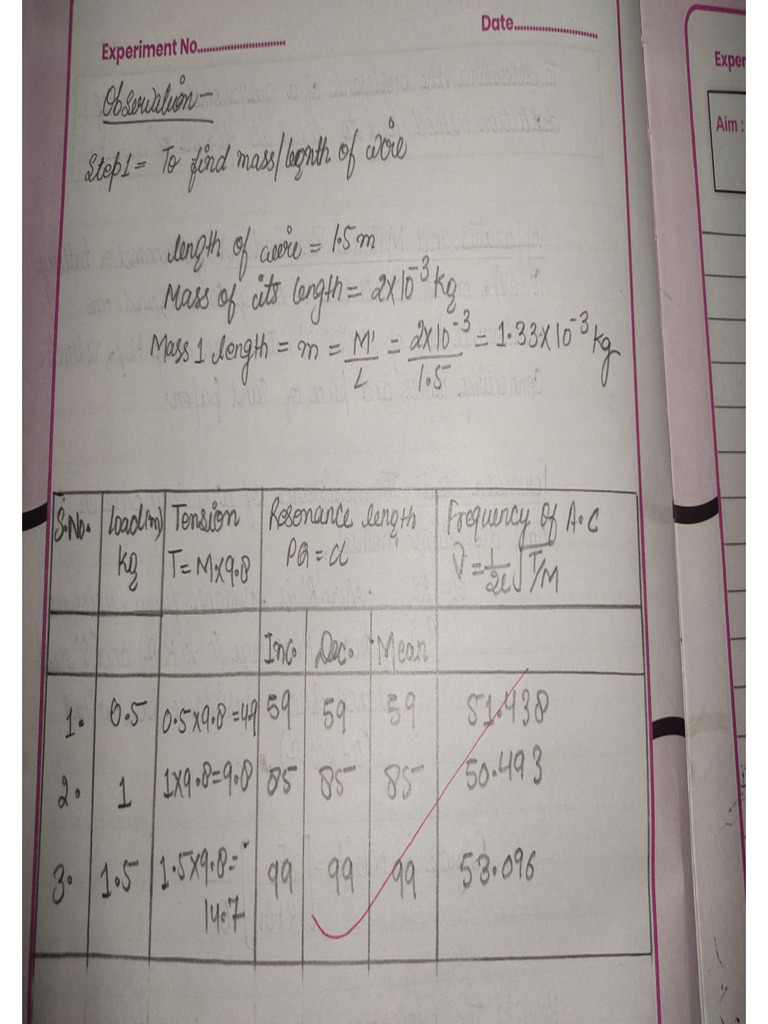 Date..............
Experiment No...................
Exper
Aim :
Observation -
Step1 = To find mass/legnth of wire
length of wire = 1.5m
Mass of its length = 2x10⁻³ kg
Mass 1 length = m = M'/L = 2x10⁻³/1.5 = 1.33x10⁻³ kg
S.No. Load(m) kg Tension T=Mx9.8 Resonance length PQ = d Frequency of A.C ν = 1/2l √T/M
Inc. Dec. Mean
1. 0.5 0.5x9.8=4.9 59 59 59 51.438
2. 1 1x9.8=9.8 85 85 85 50.493
3. 1.5 1.5x9.8= 14.7 99 99 99 53.096